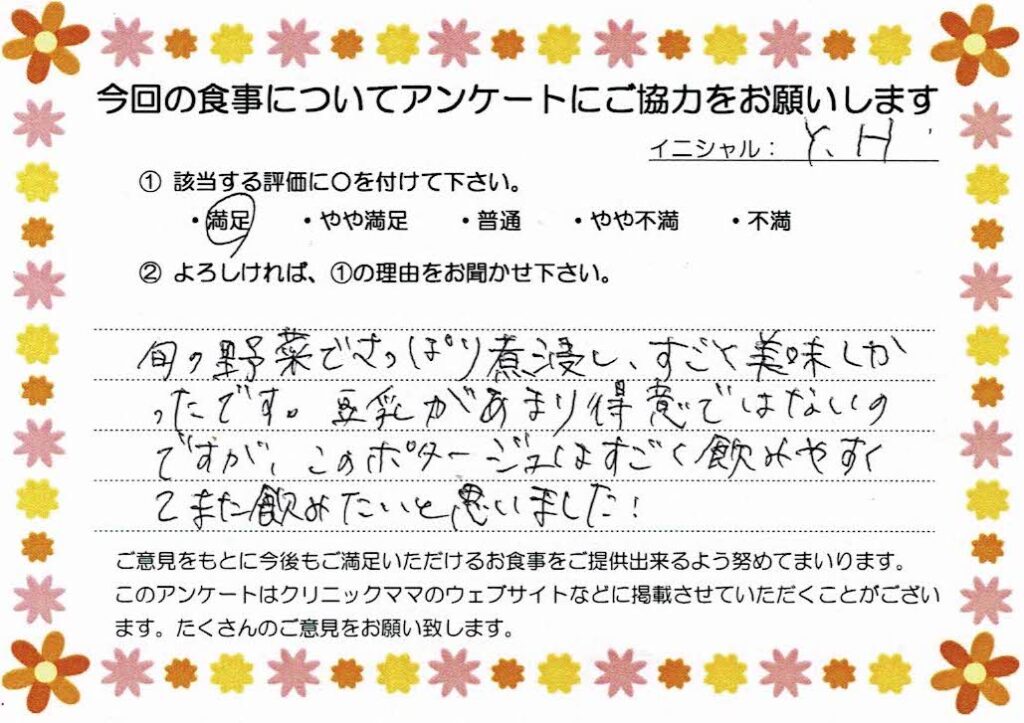 今回の食事についてアンケートにご協力をお願いします
イニシャル： Y、H
① 該当する評価に〇を付けて下さい。
・満足 ・やや満足 ・普通 ・やや不満 ・不満
② よろしければ、①の理由をお聞かせ下さい。
旬の野菜でさっぱり煮浸し、すごく美味しか
ったです。豆乳があまり得意ではないの
ですが、このポタージュはすごく飲みやすく
てまた飲みたいと思いました！
ご意見をもとに今後もご満足いただけるお食事をご提供出来るよう努めてまいります。
このアンケートはクリニックママのウェブサイトなどに掲載させていただくことがござい
ます。たくさんのご意見をお願い致します。